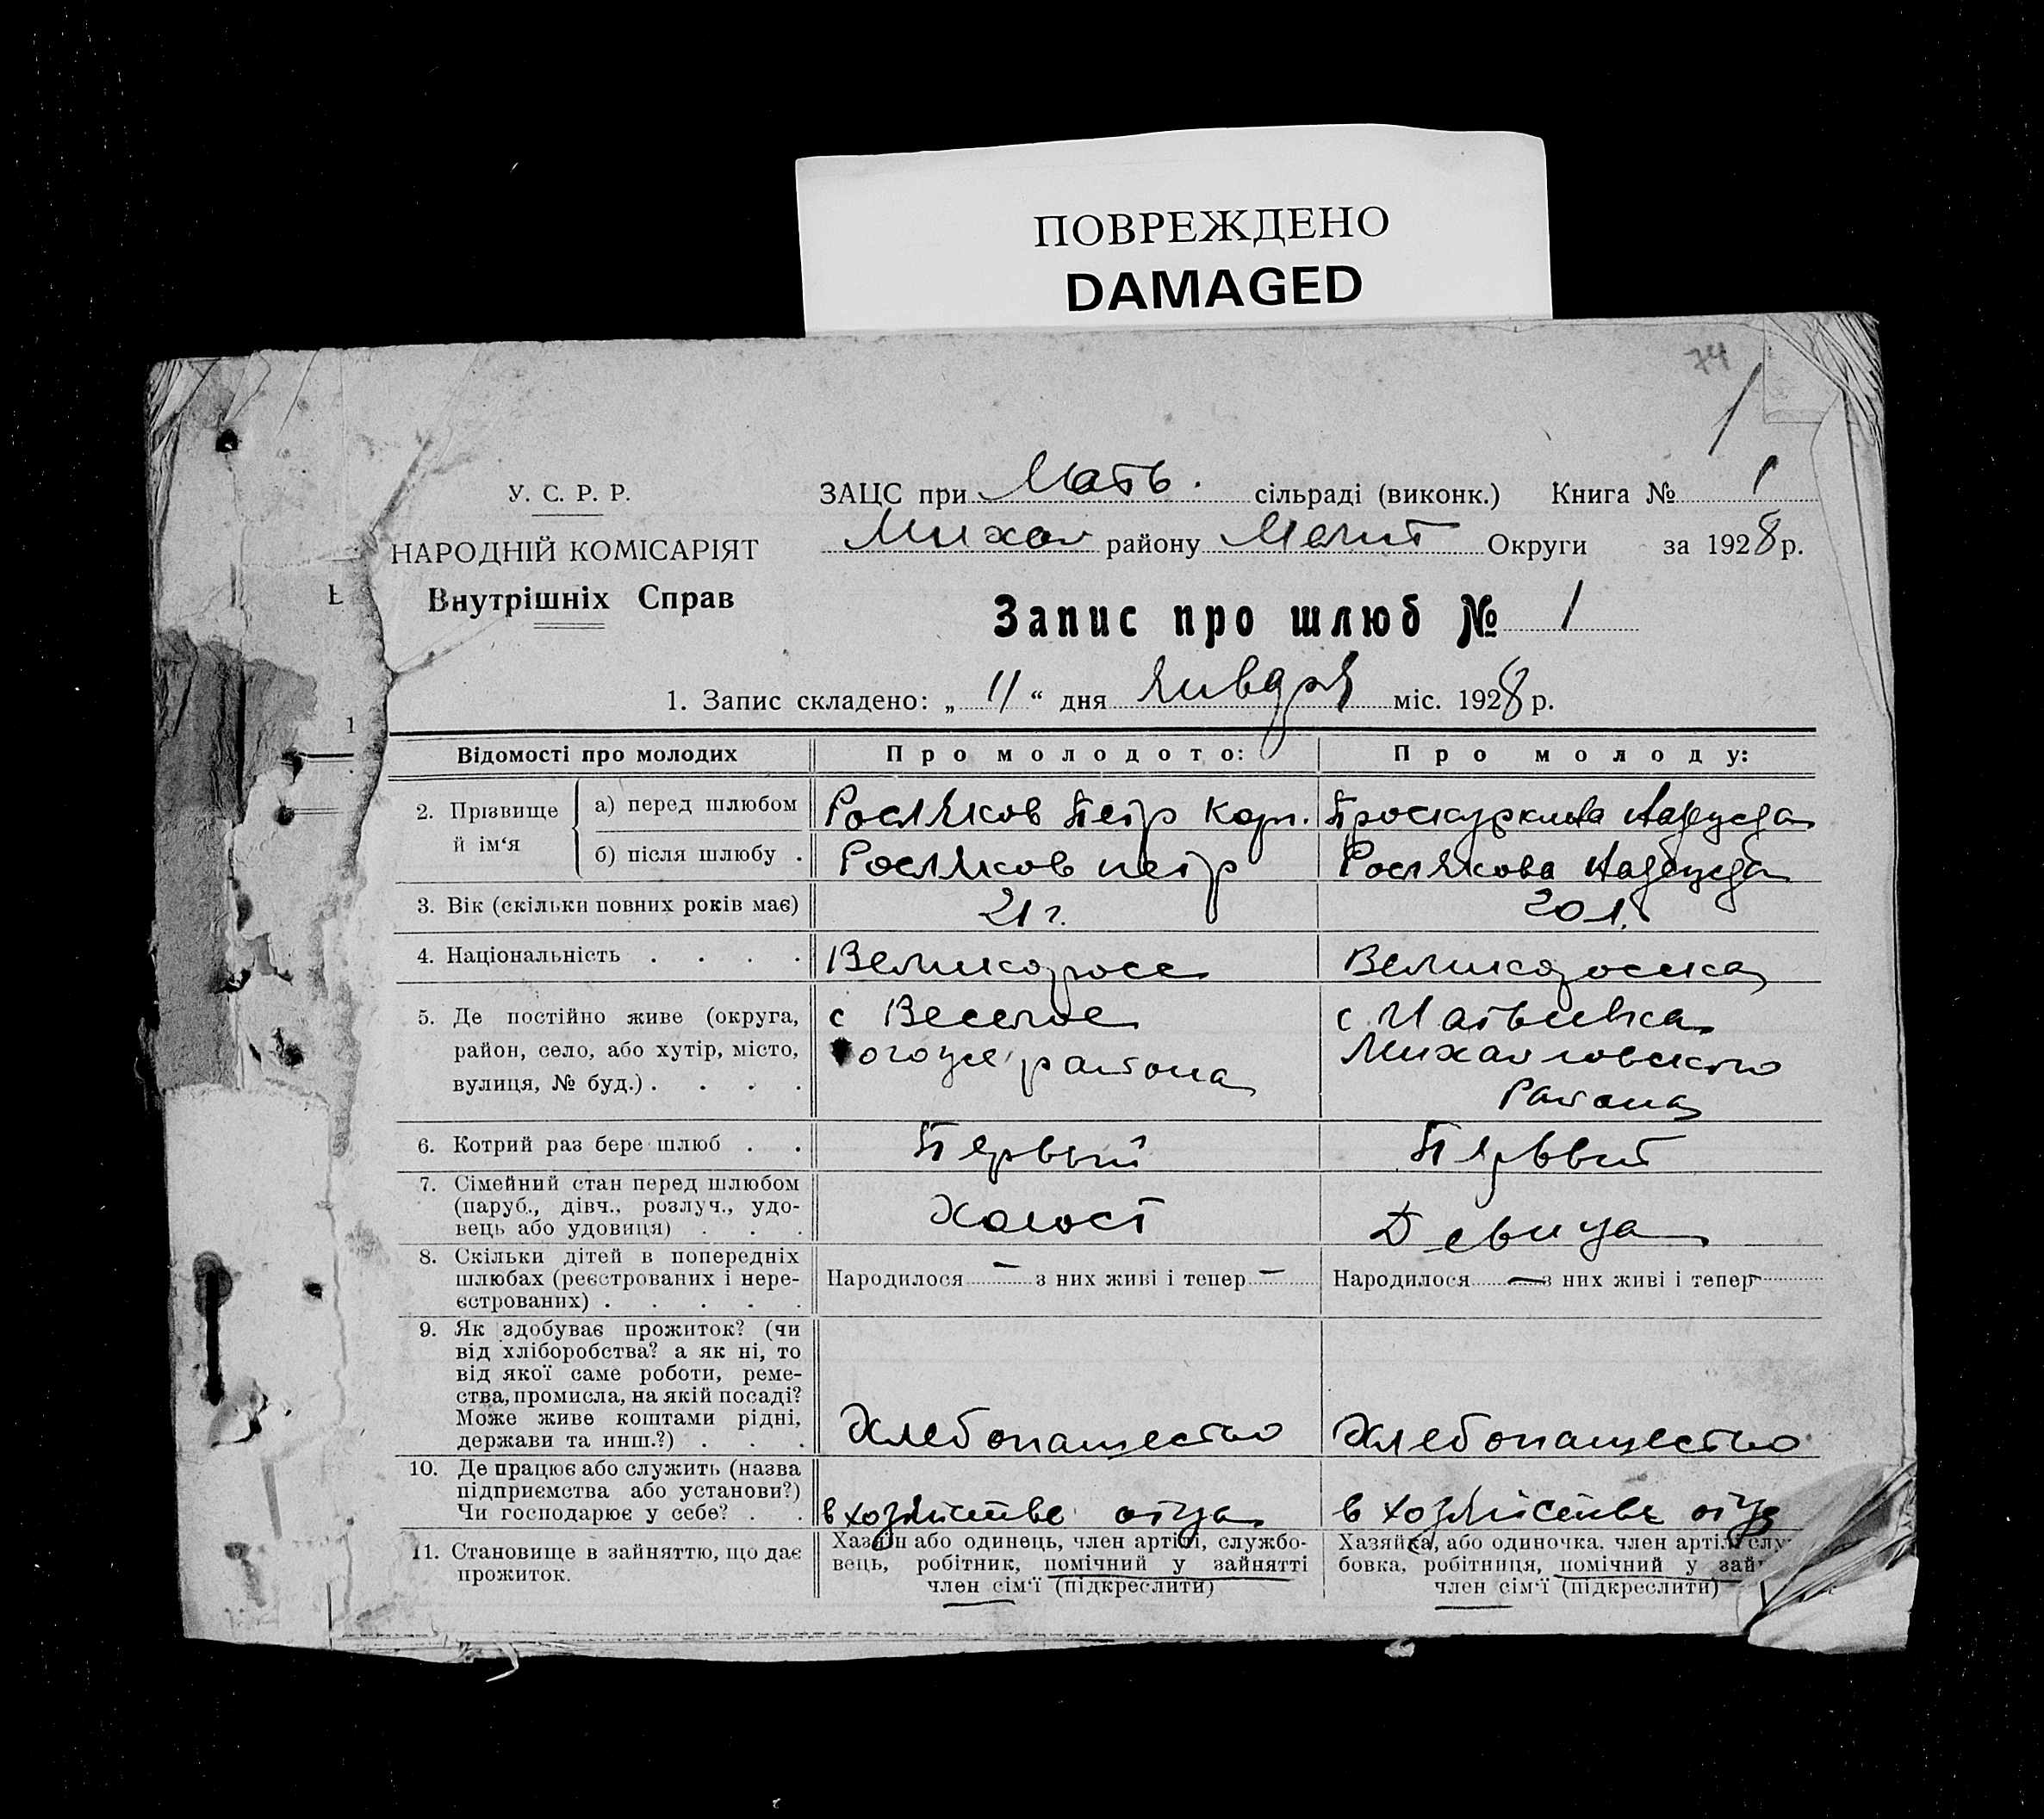 ПОВРЕЖДЕНО
DAMAGED
74
1
У. С. Р. Р.
НАРОДНІЙ КОМІСАРІЯТ
Внутрішніх Справ
ЗАЦС при Матв. сільраді (виконк.) Книга № 1
Михай району Меліт Округи за 1928 р.
Запис про шлюб № 1
1. Запис складено: „ 11 “ дня января міс. 1928 р.
Відомості про молодих
Про молодого:
Про молоду:
2. Прізвище й ім‘я
а) перед шлюбом
Росляков Петр Кор.
Проскурклва Надежда
б) після шлюбу .
Росляков петр
Рослякова Надежда
3. Вік (скільки повних років має)
21 г.
20 л.
4. Національність . . . .
Великоросс
Великоросска
5. Де постійно живе (округа,
район, село, або хутір, місто,
вулиця, № буд.) . . . .
с Веселое
района
с. Матвеевка
Михайловского
Района
6. Котрий раз бере шлюб . .
Первый
Первый
7. Сімейний стан перед шлюбом
(паруб., дівч., розлуч., удо-
вець або удовиця) . . .
Холост
Девица
8. Скільки дітей в попередніх
шлюбах (реєстрованих і нере-
єстрованих) . . . . .
Народилося — з них живі і тепер —
Народилося — з них живі і тепер —
9. Як здобуває прожиток? (чи
від хліборобства? а як ні, то
від якої саме роботи, реме-
ства, промисла, на якій посаді?
Може живе коштами рідні,
держави та инш.?) . . .
Хлебопашество
Хлебопашество
10. Де працює або служить (назва
підприємства або установи?)
Чи господарює у себе? . .
в хозяйстве отца
в хозяйстве отца
11. Становище в зайняттю, що дає
прожиток.
Хазяїн або одинець, член артілі, службо-
вець, робітник, помічний у зайнятті
член сім‘ї (підкреслити)
Хазяйка, або одиночка, член артілі, слу
бовка, робітниця, помічний у зай
член сім‘ї (підкреслити)